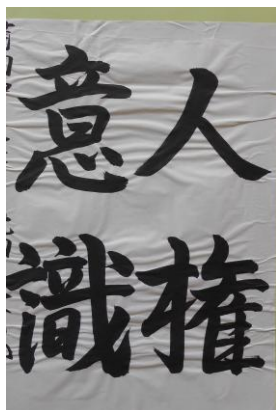 人権
意識